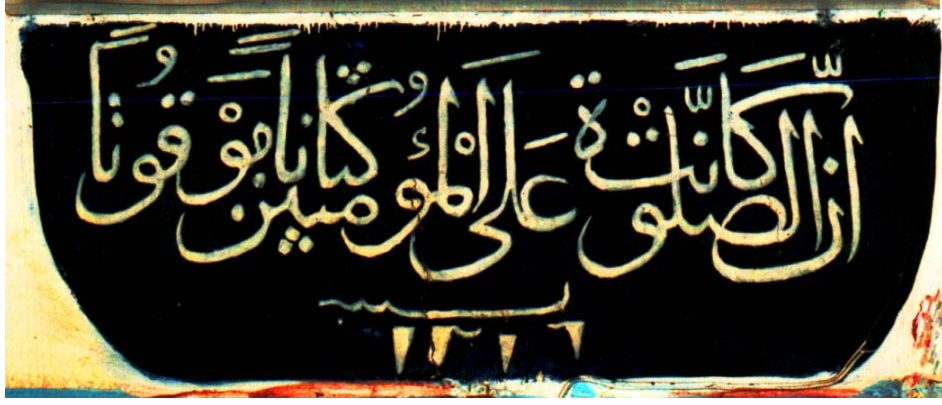 اِنَّ الصَّلٰوةَ كَانَتْ عَلَى الْمُؤْمِنِينَ كِتَابًا مَوْقُوتًا
سنه ١٣١٦